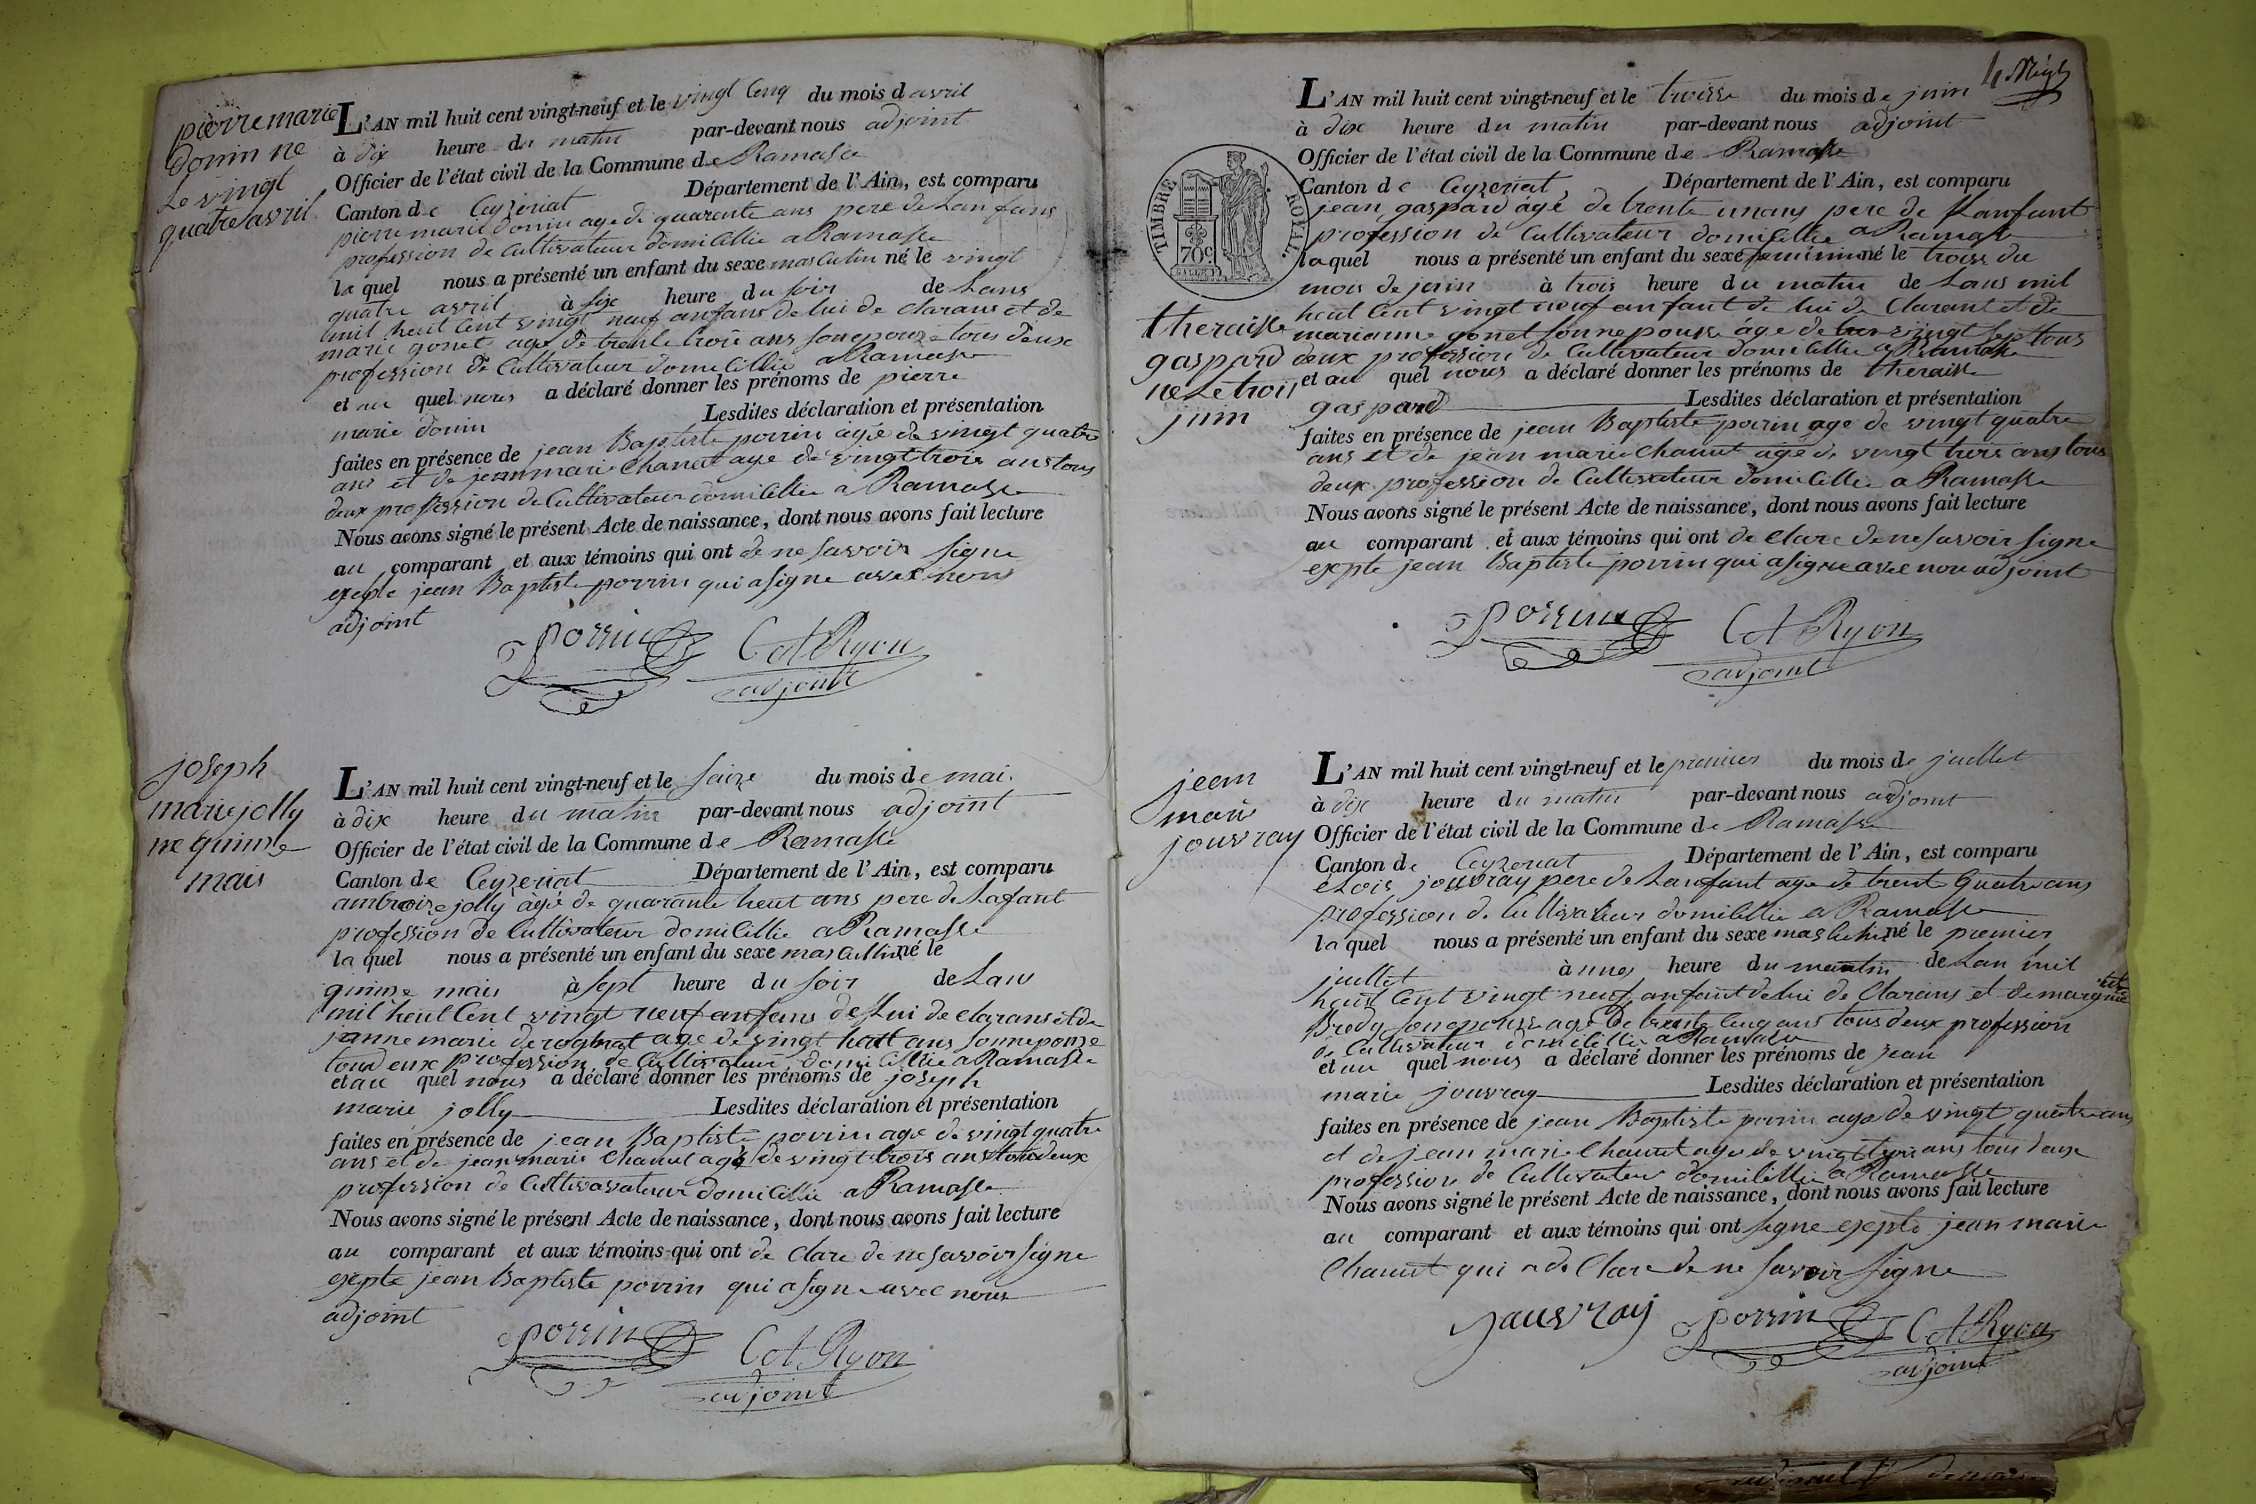 pierre marie
donin ne
Le vingt
quatre avril
L'AN mil huit cent vingt-neuf et le vingt cinq du mois d avril
à dix heure du matin par-devant nous adjoint
Officier de l'état civil de la Commune de Ramasse
Canton de Ceyzeriat Département de l'Ain, est comparu
pierre marie donin age de quarente ans pere de Lanfans
profession de Cultivateur domicillie a Ramasse
laquel nous a présenté un enfant du sexe masculin né le vingt
quatre avril à six heure du soir de Lans
mil heut Cent vingt neuf anfans de lui de clarans et de
marie gonet age de trente trois ans son epouze tous deux
profession de Cultivateur domicillie a Ramasse
et au quel nous a déclaré donner les prénoms de pierre
marie donin Lesdites déclaration et présentation
faites en présence de jean Baptiste porrin agé de vingt quatre
ans et de jean marie Chanut age de vingt trois ans tous
deux profession de Cultivateur domicillie a Ramasse
Nous avons signé le présent Acte de naissance, dont nous avons fait lecture
au comparant et aux témoins qui ont de ne savoir signe
exepte jean Baptiste porrin qui a signe avec nous
adjoint
Porrin Cot Ryon
adjoint
joseph
marie jolly
ne quinse
mais
L'AN mil huit cent vingt-neuf et le saize du mois de mai
à dix heure du matin par-devant nous adjoint
Officier de l'état civil de la Commune de Ramasse
Canton de Ceyzeriat Département de l'Ain, est comparu
ambroise jolly agé de quarante heut ans pere de Lafant
profession de Cultivateur domicillie a Ramasse
laquel nous a présenté un enfant du sexe mascullin né le
quinse mais à sept heure du soir de Lan
mil heut Cent vingt neuf anfans de Lui de clarans et de
janne marie age de vingt heut ans sonneponze
tous deux profession de Cultivateur domicillie a Ramasse
et au quel nous a déclaré donner les prénoms de joseph
marie jolly Lesdites déclaration et présentation
faites en présence de jean Baptiste porrin age de vingt quatre
ans et de jean marie Chanut agé de vingt trois ans tous deux
profession de Cultivavateur domicillie a Ramasse
Nous avons signé le présent Acte de naissance, dont nous avons fait lecture
au comparant et aux témoins qui ont de clare de ne savoir signe
exepte jean Baptiste porrin qui a signe avec nous
adjoint
Porrin Cot Ryon
adjoint
4
TIMBRE ROYAL
70c
theraisse
gaspard
ne Le trois
juin
L'AN mil huit cent vingt-neuf et le troisse du mois de juin
à dix heure du matin par-devant nous adjoint
Officier de l'état civil de la Commune de Ramasse
Canton de Ceyzeriat, Département de l'Ain, est comparu
jean gaspard agé de trente un ans pere de Lanfant
profession de Cultivateur domicillie a Ramasse
laquel nous a présenté un enfant du sexe feminin né le troisse du
mois de juin à trois heure du matin de Lans mil
heut Cent vingt neuf anfant de lui de Clarant et de
marianne gonet sonnepousse age de vingt sept tous
deux profession de Cultivateur domicillie a Ramasse
et au quel nous a déclaré donner les prénoms de theraisse
gaspard Lesdites déclaration et présentation
faites en présence de jean Baptiste porrin age de vingt quatre
ans et de jean marie Chanut agé de vingt trois ans tous
deux profession de Cultivateur domicillie a Ramasse
Nous avons signé le présent Acte de naissance, dont nous avons fait lecture
au comparant et aux témoins qui ont de clare de ne savoir signe
exepte jean Baptiste porrin qui a signe avec nou adjoint
Porrin Cot Ryon
adjoint
jean
marie
jouvray
L'AN mil huit cent vingt-neuf et le premier du mois de juillet
à dix heure du matin par-devant nous adjoint
Officier de l'état civil de la Commune de Ramasse
Canton de Ceyzeriat Département de l'Ain, est comparu
eLois jouvray pere de Lanfant age de trente quatre ans
profession de Cultivateur domicillie a Ramasse
laquel nous a présenté un enfant du sexe masculin né le premier
juillet à une heure du matin de Lan mil
heut Cent vingt neuf anfant de lui de Clarans et de
Bredy son eponsse age de trente cinq ans tous deux profession
de Cultivateur domicillie a Ramasse
et au quel nous a déclaré donner les prénoms de jean
marie jouvray Lesdites déclaration et présentation
faites en présence de jean Baptiste porrin age de vingt quatre ans
et de jean marie Chanut age de vingt trois ans tous deux
profession de Cultivateur domicillie a Ramasse
Nous avons signé le présent Acte de naissance, dont nous avons fait lecture
au comparant et aux témoins qui ont signe exepte jean marie
Chanut qui a de Clare de ne savoir signe
jauvray Porrin Cot Ryon
adjoint